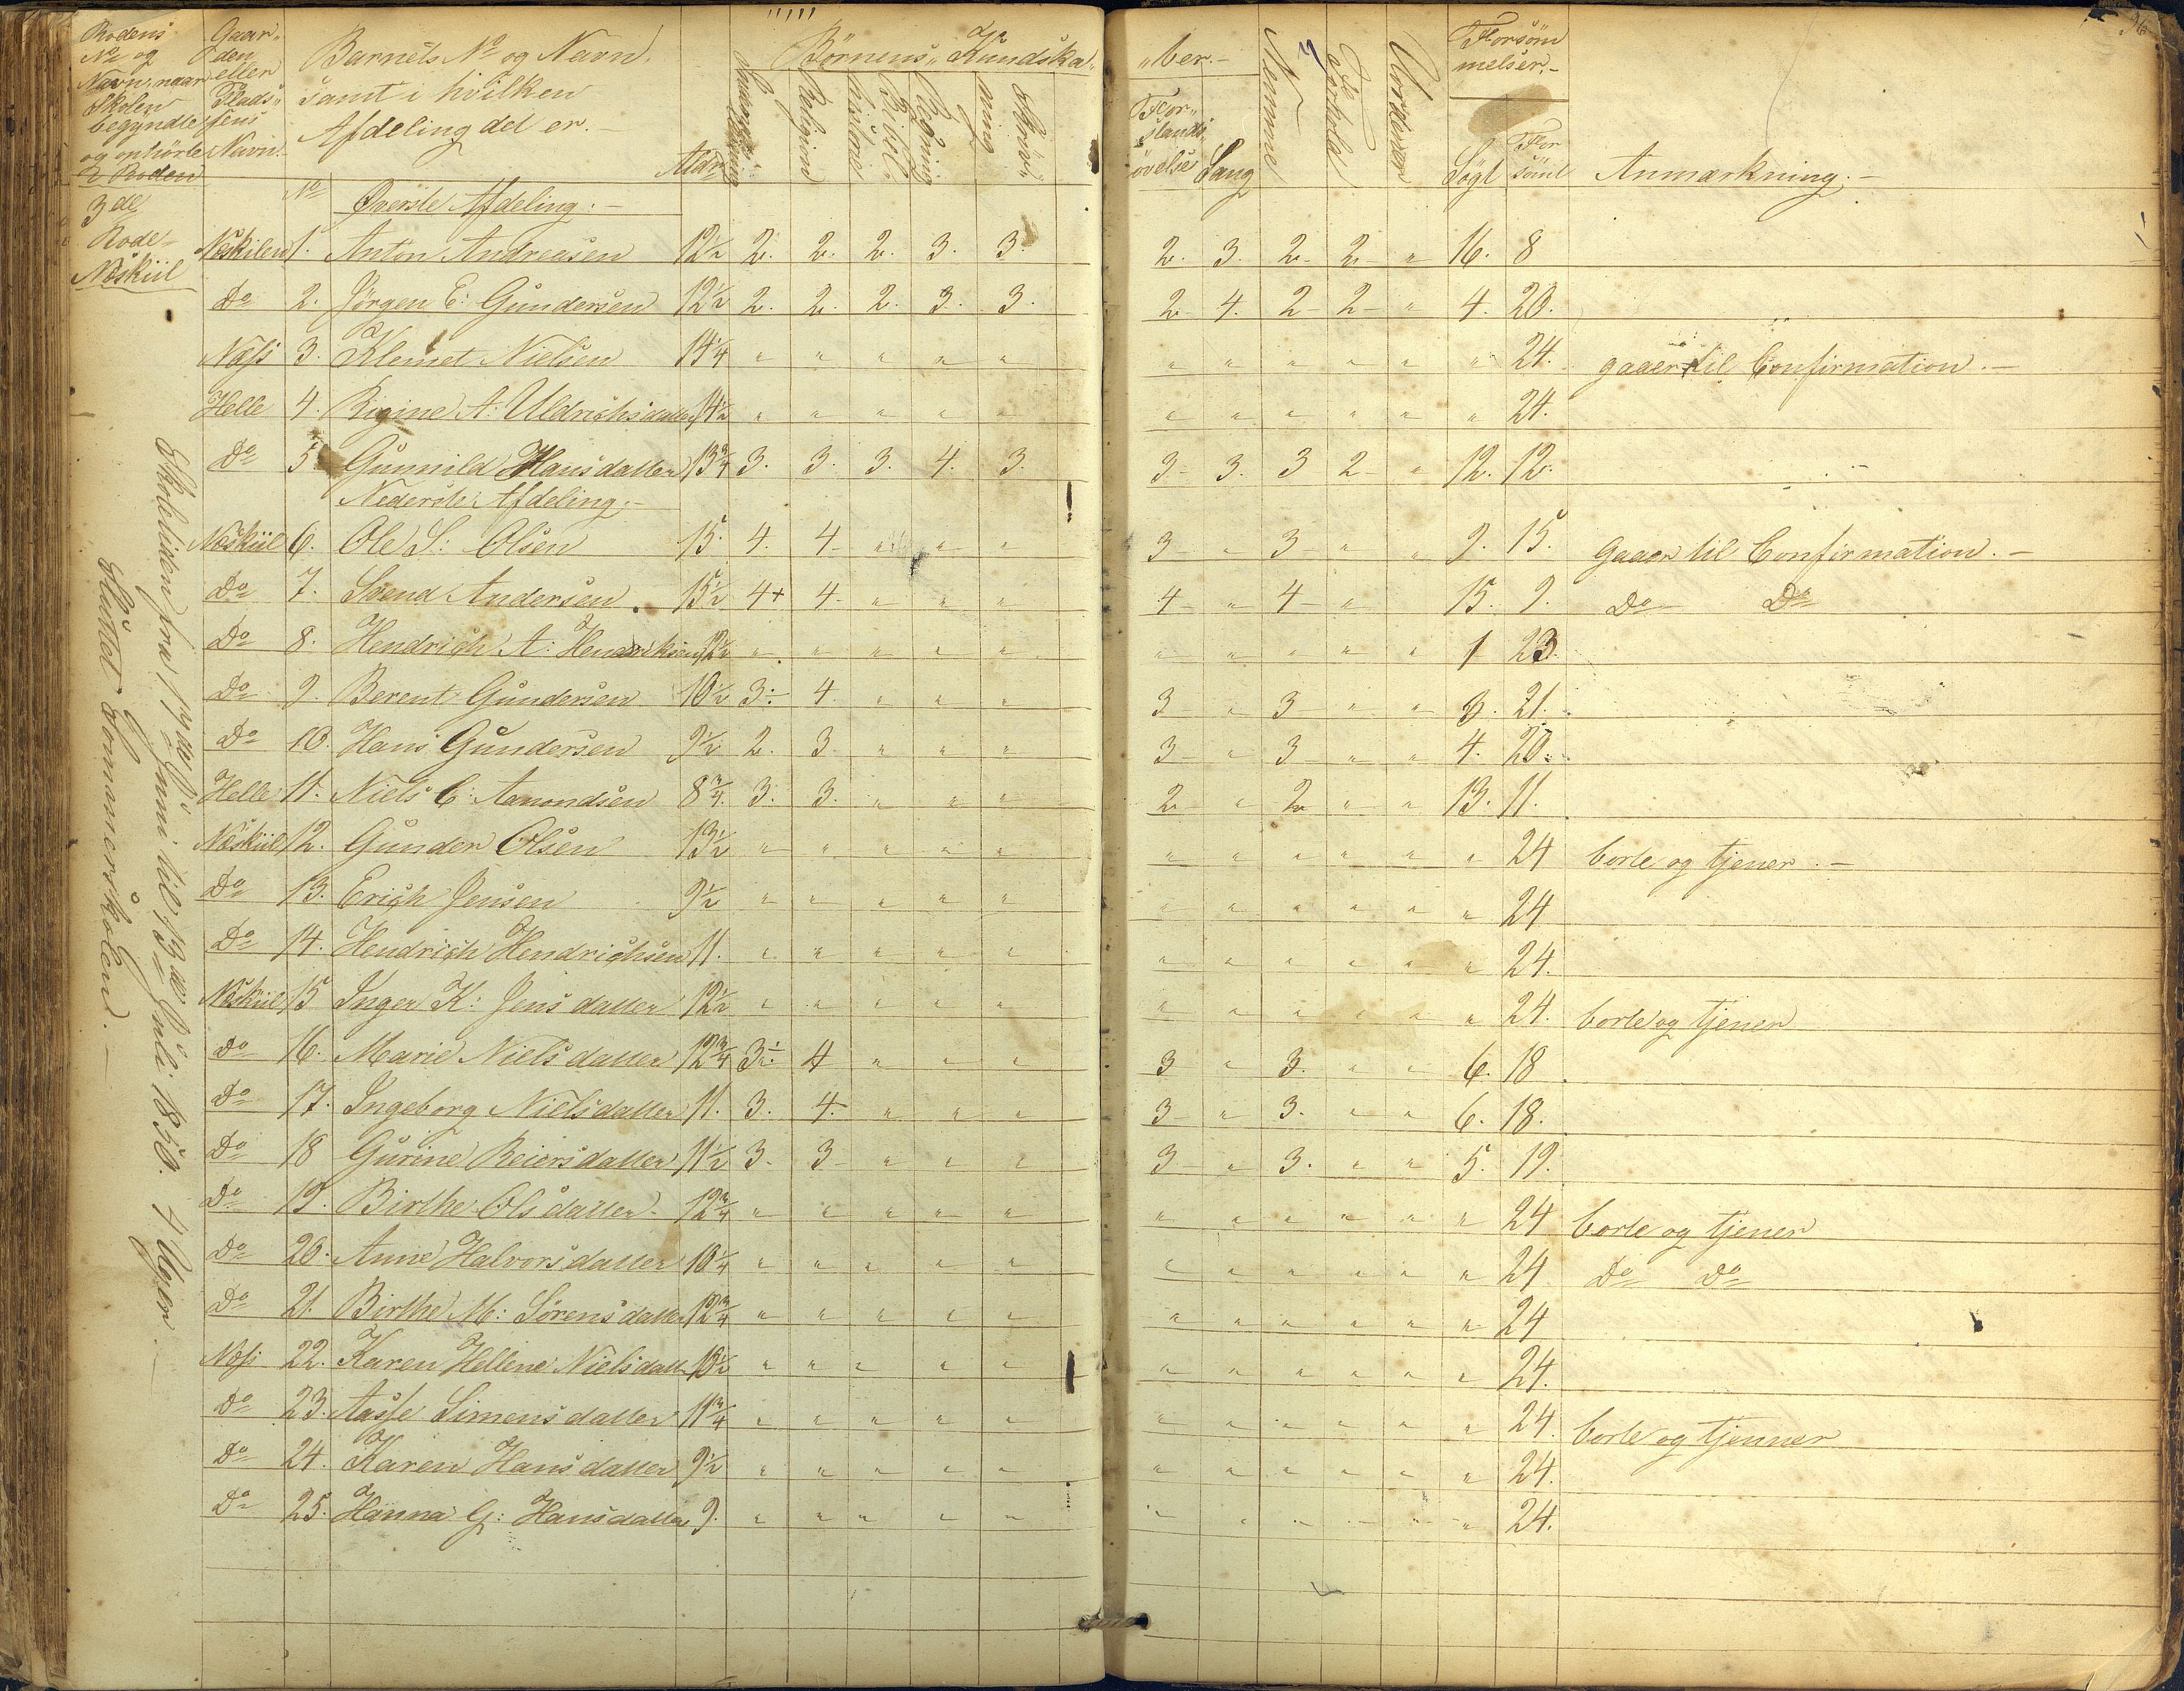 Rodens No og Navn, naar Skolen begyndte og ophörte i Roden
Gaardens eller Pladsens Navn.
Barnets No og Navn, samt i hvilken Afdeling det er. —
Alder
Börnens Kundska„
„ber. —
Religion
Bibel-historie
Regning
Skriv„ning
For„stands övelse
Sang
Nemme
Forhold
Forsömmelser. —
Sögt
For sömt
Anmærkning. —
3de Rode Næskiil
Skoletiden fra 17de Juni til 13de Juli 1850. 4 Uger. —
Sluttet Sommerskolen. —
No Øverste Afdeling. —
Næskilen 1. Anton Andreasen 12½ 2. 2. 2. 3. 3. 2. 3. 2 2 " 16. 8
Do 2. Jörgen E: Gundersen 12½ 2. 2. 2. 3. 3. 2 4. 2 2 " 4. 20.
Næss 3. Klemet Nielsen 14¼ " " " " " " " " " " " 24. gaaer til Confirmation. —
Helle 4. Rigine A: Uldrichsdatter 14½ " " " " " " " " " " " 24.
Do 5 Gunnild Hansdatter 13¾ 3. 3. 3. 4. 3. 3 3. 3 2 " 12. 12.
Nederste Afdeling. —
Næskiil 6. Ole S: Olsen 15. 4. 4 " " " 3 " 3 " " 9. 15. Gaaer til Confirmation. —
Do 7. Svend Andersen 15½ 4+ 4 " " " 4 " 4 " 15. 9. Do Do
Do 8. Hendrich A: Hendrichsen 12½ " " " " " " " " " " 1 23.
Do 9. Berent Gundersen 10½ 3÷ 4. " " " 3 " 3 " " 3. 21.
Do 10. Hans Gundersen 9½ 2. 3. " " " 3 " 3 " " 4. 20.
Helle 11. Niels C: Amondsen 8¾ 3. 3. " " " 2 " 2 " " 13. 11.
Næskiil 12. Gunder Olsen 13½ " " " " " " " " " " " 24 borte og tjener. —
Do 13. Erich Jensen 9½ " " " " " " " " " " " 24
Do 14. Hendrich Hendrichsen 11. " " " " " " " " " " " 24.
Næskiil 15 Inger K: Jensdatter 12½ " " " " " " " " " " " 24. borte og tjener
Do 16. Marie Nielsdatter 12¾ 3÷ 4 " " " 3 " 3. " " 6. 18
Do 17. Ingeborg Nielsdatter 11. 3. 4. " " " 3 " 3. " " 6. 18.
Do 18 Gurine Reiersdatter 11½ 3. 3 " " " 3 " 3. " " 5. 19.
Do 19. Birthe Olsdatter 12¾ " " " " " " " " " " " 24 borte og tjener
Do 20. Anne Halvorsdatter 10¼ " " " " " " " " " " " 24 Do Do
Do 21. Birthe M: Sörensdatter 12¾ " " " " " " " " " " " 24
Næss 22. Karen Hellene Nielsdatt 10½ " " " " " " " " " " " 24.
Do 23. Aasse Simensdatter 11¾ " " " " " " " " " " " 24. borte og tjenner
Do 24. Karen Hansdatter 9½ " " " " " " " " " " " 24.
Do 25. Hanna G: Hansdatter 9. " " " " " " " " " " " 24.